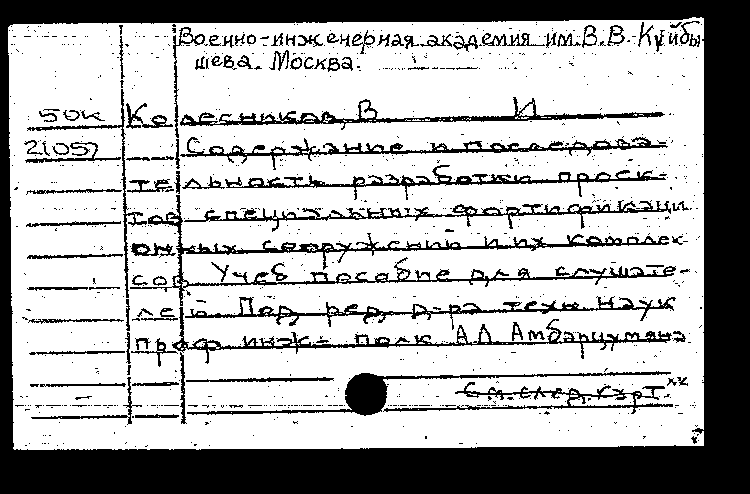 Военно-инженерная академия им. В.В. Куйбы-
шева. Москва.
50к Колесников, В И
21057 Содержание и последова-
тельность разработки проек-
тов специальных фортификаци
онных сооружений и их комплек
сов Учеб пособие для слушате-
лей Под ред. д-ра техн наук
проф инж- полк А Л Амбарцумяна
См. след. карт.